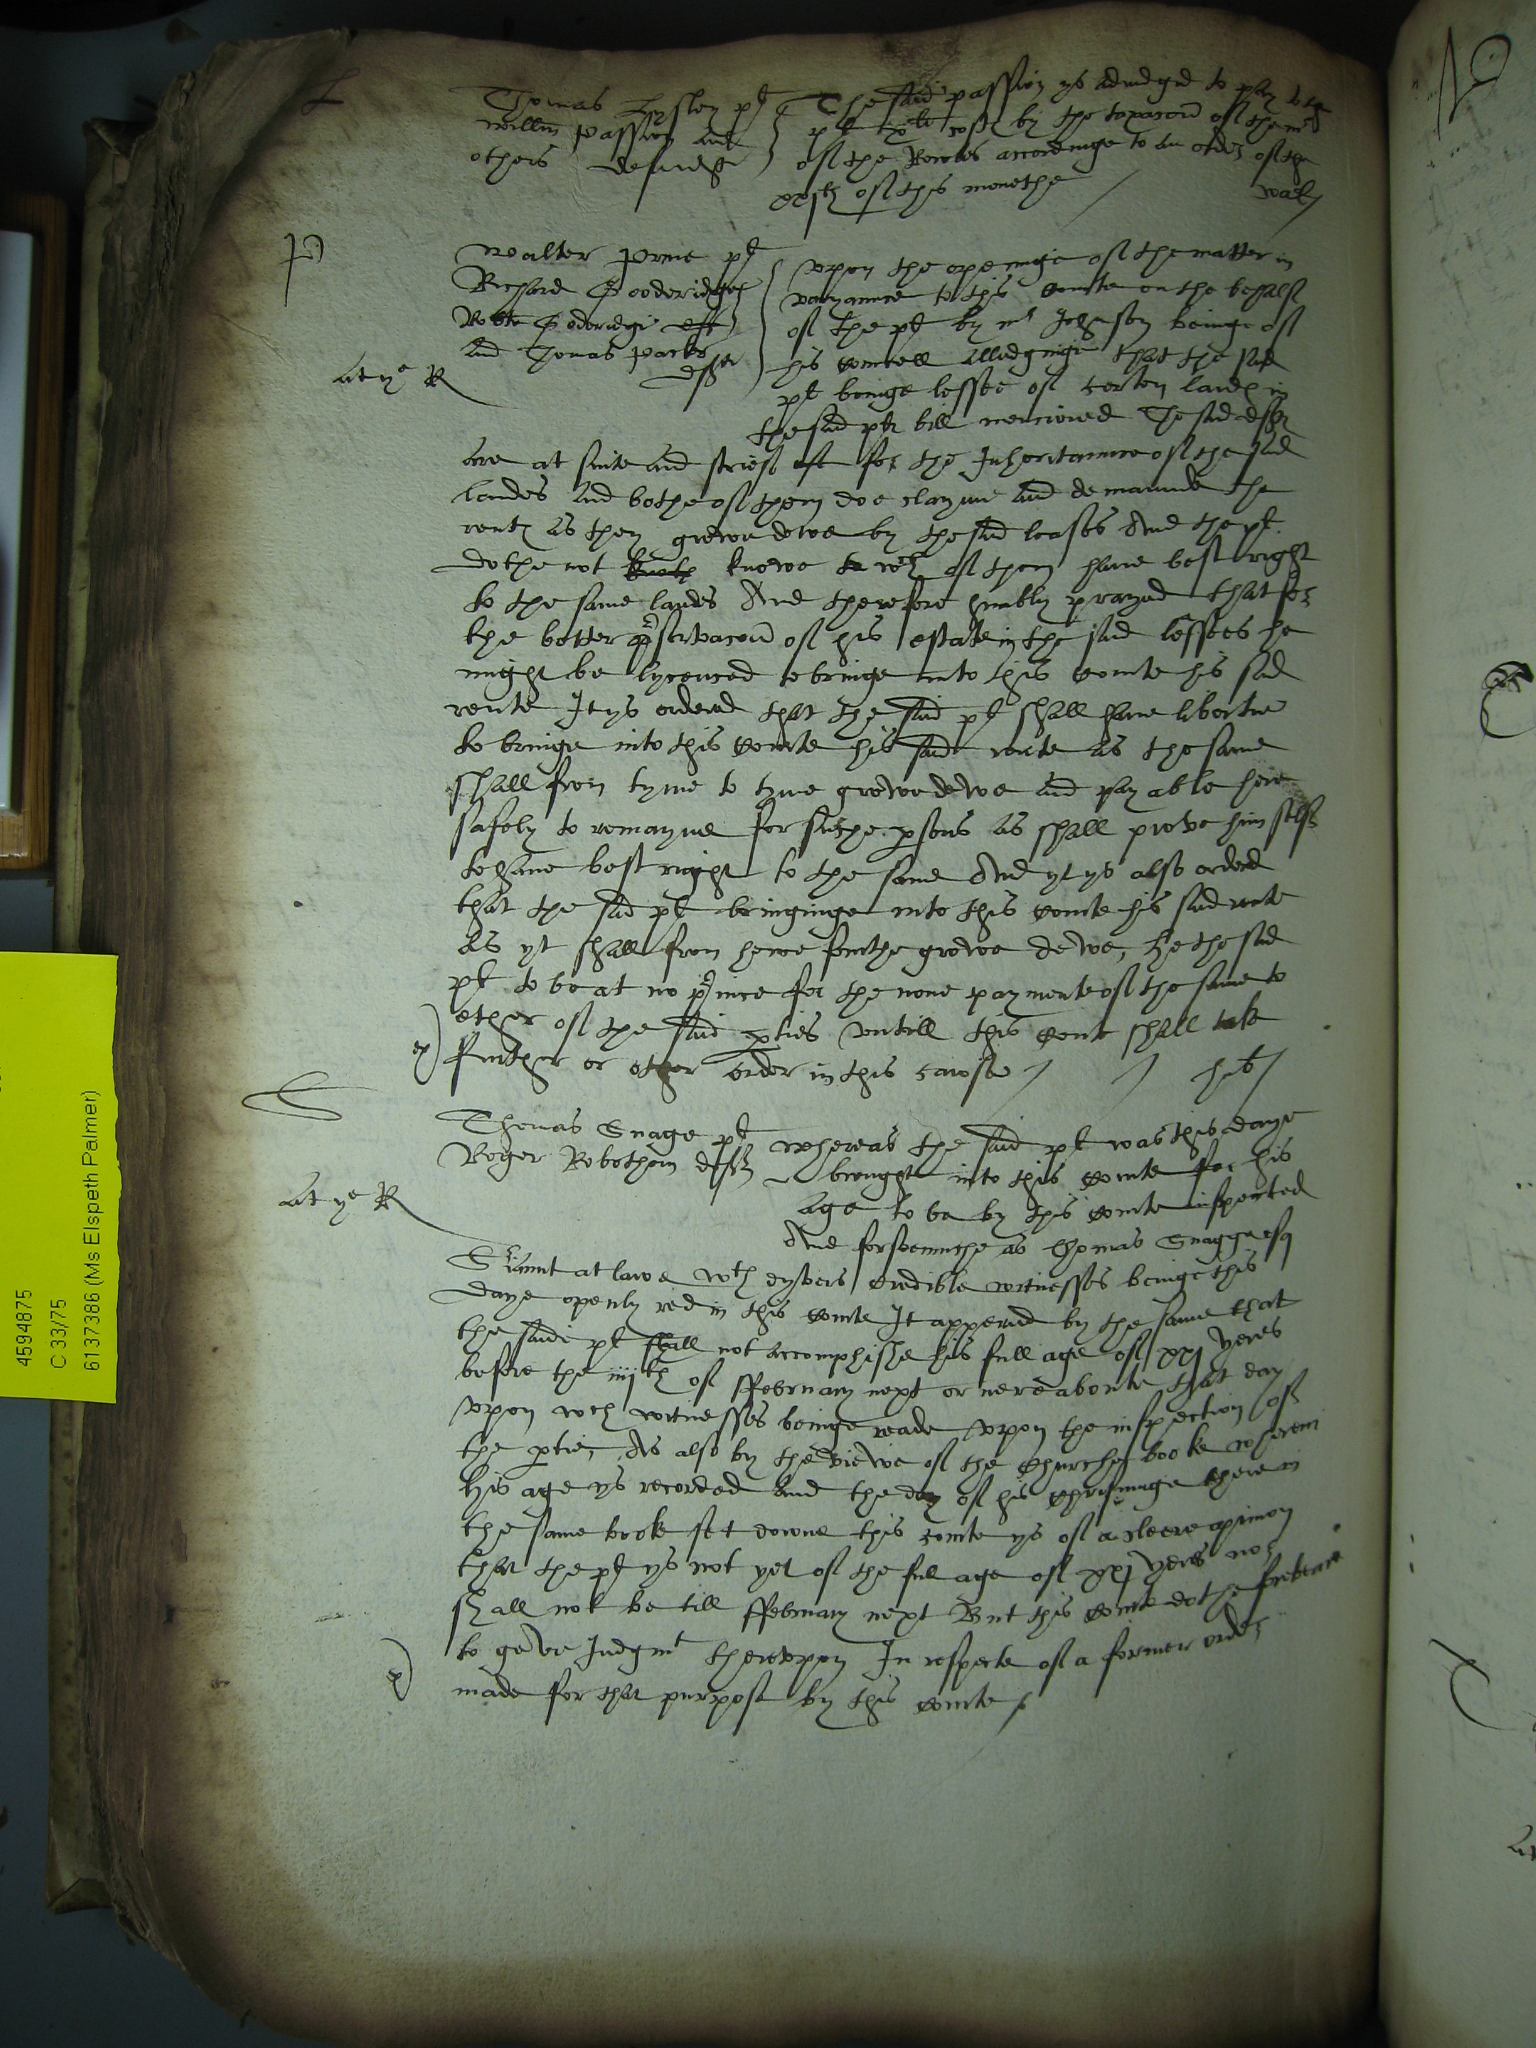 L
Thomas Lysley pt
Willm Passion and
others defendtes
The said passion ys adiudged to pay to the
pt costes by the taxacon of the mr
of the Rowles accordinge to an order of the
xxjth of this monethe
P
Walter Prine pt
Richard Gooderidge
Robte Goderidge
and Thomas Parker
deftes
at ye R
Vpon the openinge of the matter in
varyaunce to this Courte on the behalf
of the pt by mr Johnson beinge of
his councell alledginge that the said
pt beinge lessee of certen landes in
the said ptes bill mencioned The said deftes
are at suite and strief for the Inheritaunce of the said
landes and bothe of them doe clayme and demaunde the
rentes as they growe dewe by the said leases And the pt
dothe not knowe wch of them have best right
to the same landes And therefore humbly prayed that for
the better pservacon of his estate in the said lessees he
might be lycenced to bringe into this Courte his said
rente It ys ordered that the said pt shall have libertie
to bringe into this Courte his said rente as the same
shall from tyme to tyme growe dewe and payable here
safely to remayne for suche psons as shall prove him self
to have best right to the same And yt ys also ordered
that the said pt bringinge into this Courte his said rente
as yt shall from hence furthe growe dewe, he the said
pt to be at no piudice for the none paymente of the same to
ether of the said pties vntill this Court shall take
further or other order in this cawse
S
Thomas Snage pt
Roger Robothom deft
at ye R
Whereas the said pt was this daye
brought into this Courte for his
age to be by this Courte inspected
And forsomuche as Thomas Snagge esq
Sriaunt at lawe wth dyvers credible witnesses beinge this
daye openly red in this Courte It appered by the same that
the said pt shall not accomplishe his full age of xxj yeres
before the iiijth of ffebruary next or nere aboute that day
Vpon wch witnesses beinge reade vpon the inspection of
the ptie, As also by the viewe of the Churche booke wherein
his age ys recorded and the day of his christninge there in
the same booke set downe this Courte ys of a cleere opinion
that the pt ys not yet of the full age of xxj yeres nor
shall not be till ffebruary next But this Courte dothe forbeare
to geve Judgmt therevpon In respecte of a former order
made for that purpose by this Courte
4594875
C 33/75
6137386 (Ms Elspeth Palmer)